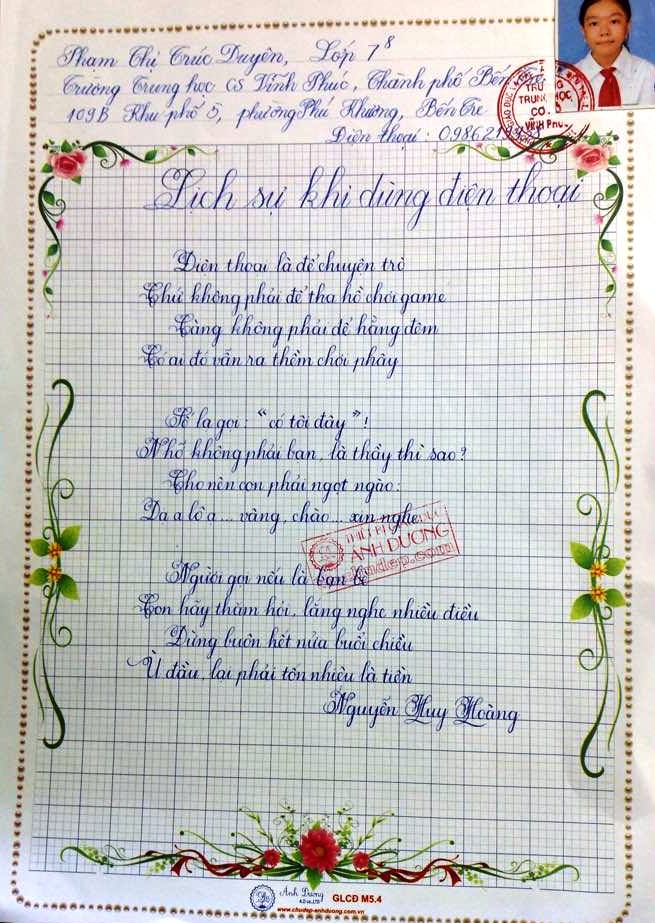 Phạm Thị Trúc Duyên, Lớp 7⁸
Trường Trung học CS Vĩnh Phúc, Thành phố Bến Tre
109B Khu phố 5, phường Phú Khương, Bến Tre
Điện thoại: 098621
Lịch sự khi dùng điện thoại
Điện thoại là để chuyện trò
Chứ không phải để tha hồ chơi game
Càng không phải để hằng đêm
Có ai đó vẫn ra thềm chơi phây
Số lạ gọi: "có tôi đây"!
Nhỡ không phải bạn, là thầy thì sao?
Cho nên con phải ngọt ngào:
Dạ a lô ạ... vâng, chào... xin nghe
Người gọi nếu là bạn bè
Con hãy thăm hỏi, lắng nghe nhiều điều
Đừng buôn hết nửa buổi chiều
Ù đầu, lại phải tốn nhiều là tiền
Nguyễn Huy Hoàng
ÁNH DƯƠNG
Ánh Dương
GLCĐ M5.4
www.chudep-anhduong.com.vn